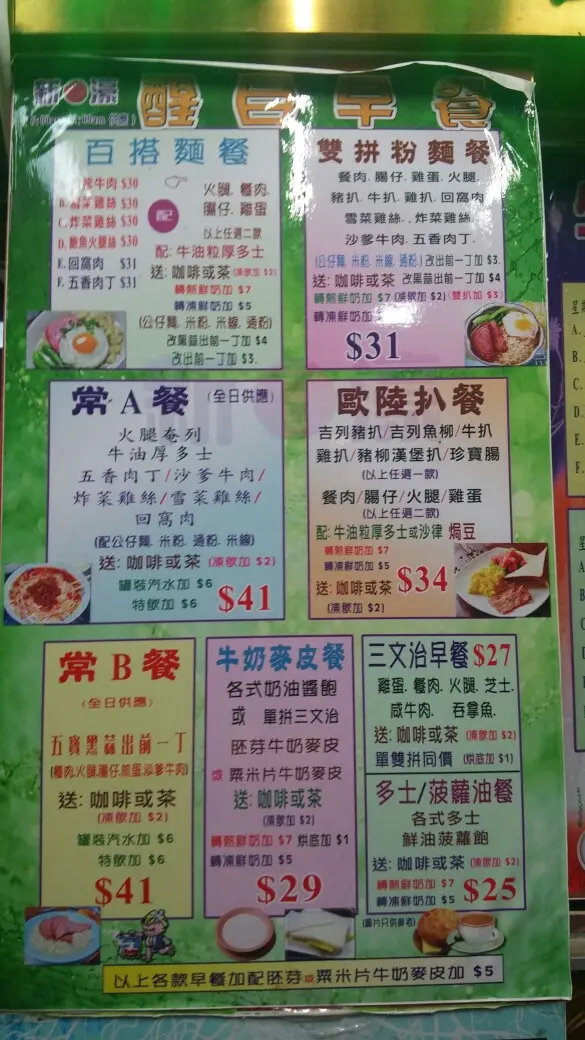 新 濠
醒目早餐
00am 供應)
百搭麵餐
牛肉 $30
B. 雪菜雞絲 $30
C. 炸菜雞絲 $30
D. 鮑魚火腿絲 $30
E. 回窩肉 $31
F. 五香肉丁 $31
配
火腿. 餐肉.
腸仔. 雞蛋
以上任選二款
配: 牛油粒厚多士
送: 咖啡或茶 (凍飲加 $2)
轉熱鮮奶加 $7
轉凍鮮奶加 $5
(公仔麵. 米粉. 米線. 通粉)
改黑蒜出前一丁加 $4
改出前一丁加 $3.
雙拼粉麵餐
餐肉. 腸仔. 雞蛋. 火腿.
豬扒. 牛扒. 雞扒. 回窩肉
雪菜雞絲. 炸菜雞絲.
沙爹牛肉. 五香肉丁.
(公仔麵. 米粉. 米線. 通粉.) 改出前一丁加 $3.
送: 咖啡或茶 改黑蒜出前一丁加 $4
轉熱鮮奶加 $7 (凍飲加 $2) (雙扒加 $3)
轉凍鮮奶加
$31
常A餐 (全日供應)
火腿奄列
牛油厚多士
五香肉丁/沙爹牛肉/
炸菜雞絲/雪菜雞絲/
回窩肉
(配公仔麵. 米粉. 通粉. 米線)
送: 咖啡或茶 (凍飲加 $2)
罐裝汽水加 $6
特飲加 $6
$41
歐陸扒餐
吉列豬扒/吉列魚柳/牛扒
雞扒/豬柳漢堡扒/珍寶腸
(以上任選一款)
餐肉/腸仔/火腿/雞蛋
(以上任選二款)
配: 牛油粒厚多士或沙律 焗豆
轉熱鮮奶加 $7
轉凍鮮奶加 $5
送: 咖啡或茶
(凍飲加 $2)
$34
常B餐
(全日供應)
五寶黑蒜出前一丁
(餐肉.火腿.腸仔.煎蛋.沙爹牛肉)
送: 咖啡或茶
(凍飲加 $2)
罐裝汽水加 $6
特飲加 $6
$41
牛奶麥皮餐
各式奶油醬飽
或 單拼三文治
胚芽牛奶麥皮
或 粟米片牛奶麥皮
送: 咖啡或茶
(凍飲加 $2)
轉熱鮮奶加 $7 烘底加 $1
轉凍鮮奶加 $5
$29
三文治早餐 $27
雞蛋. 餐肉. 火腿. 芝士.
咸牛肉. 吞拿魚.
送: 咖啡或茶 (凍飲加 $2)
單雙拼同價 (烘底加 $1)
多士/菠蘿油餐
各式多士
鮮油菠蘿飽
送: 咖啡或茶 (凍飲加 $2)
轉熱鮮奶加 $7
轉凍鮮奶加 $5
$25
(圖片只供參考)
以上各款早餐加配胚芽或粟米片牛奶麥皮加 $5
星
A.
B.
C.
D.
E.
F.